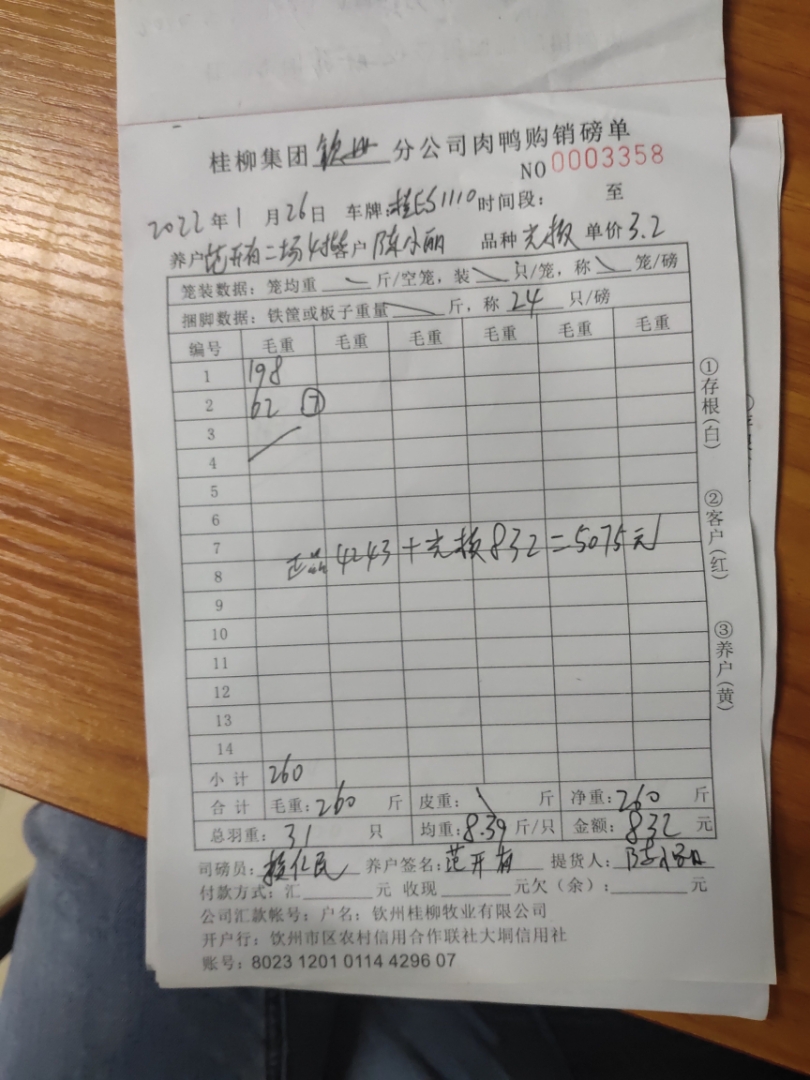 桂柳集团钦州分公司肉鸭购销磅单
NO 0003358
2022年1月26日 车牌:桂ES1110 时间段: 至
养户范开有二场 客户 陈小丽 品种 光 单价3.2
笼装数据: 笼均重 斤/空笼, 装 只/笼, 称 笼/磅
捆脚数据: 铁筐或板子重量 斤, 称 24 只/磅
编号 毛重 毛重 毛重 毛重 毛重 毛重
1 198
2 62 ⑦
3
4
5
6
7
正品 4243 + 光 832 = 5075元
8
9
10
11
12
13
14
小计 260
合计 毛重:260 斤 皮重: 斤 净重:260 斤
总羽重: 31 只 均重:8.39斤/只 金额:832 元
司磅员: 仁民 养户签名:范开有 提货人:
付款方式:汇 元 收现 元欠(余): 元
公司汇款帐号: 户名: 钦州桂柳牧业有限公司
开户行: 钦州市区农村信用合作联社大垌信用社
账号: 8023 1201 0114 4296 07
①存根(白)
②客户(红)
③养户(黄)